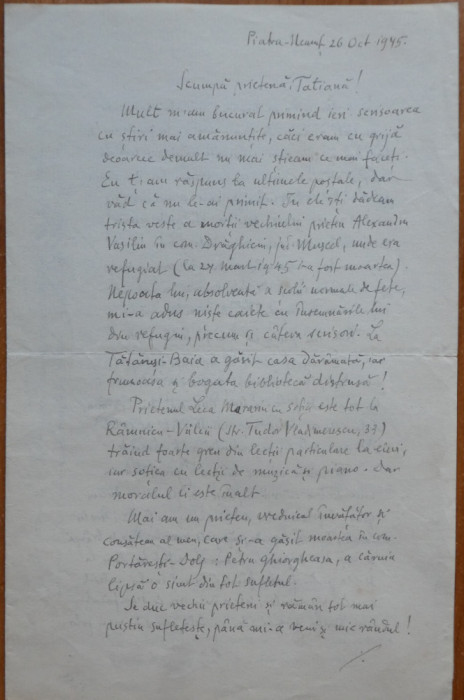 Piatra-Neamț 26 Oct 1945.
Scumpă prietenă, Tatiană!
Mult m-am bucurat primind ieri scrisoarea
cu știri mai amănunțite, căci eram cu grijă
deoarece demult nu mai știam ce mai faceți.
Eu ți-am răspuns la ultimele poștale, dar
văd că nu le-ai primit. În ele îți dădeam
trista veste a morții vechiului prieten Alexandru
Vasiliu în com. Drăghiciu, jud. Muscel, unde era
refugiat (La 27. Mart. 1945 i-a fost moartea).
Nepoata lui, absolventă a școlii normale de fete,
mi-a adus niște caiete cu însemnările lui
din refugiu, precum și câteva scrisori. La
Tătăruși-Baia a găsit casa dărâmată, iar
frumoasa și bogata bibliotecă distrusă!
Prietenul Leca Morariu cu soția este tot la
Râmnicu-Vâlcii (str. Tudor Vladimirescu, 33)
trăind foarte greu din lecții particulare la elevi,
iar soția cu lecții de muzică și piano. dar
moralul li este înalt.
Mai am un prieten, vrednicul învățător și
consătean al meu, care și-a găsit moartea în com.
Portărești-Dolj: Petru Ghiorgheasa, a căruia
lipsă o simt din tot sufletul.
Se duc vechii prieteni și rămân tot mai
pustiu sufletește, până mi-a veni și mie rândul!